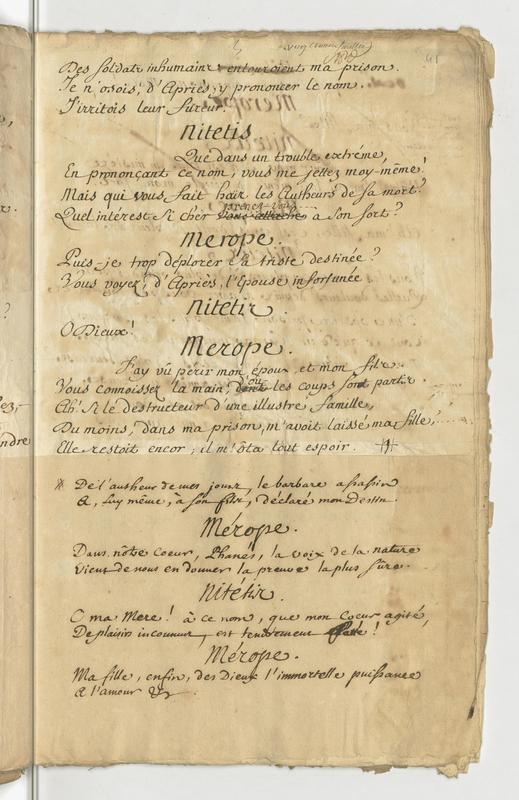 Des Soldats inhumains entouroient ma prison.
Je n'osois, d'Apriés, y prononcer le nom.
J'irritois leur fureur.
Nitetis
Que dans un trouble extrême,
En prononçant ce nom, vous me jettez moy-même!
Mais qui vous fait haïr les Autheurs de sa mort?
prenez-vous
Quel interest si cher vous attache a son sort?
Merope.
Puis-je trop déplorer sa triste destinée?
Vous voyez, d'Apriés, l'Epouse infortunée
Nitetis.
O Dieux!
Merope.
J'ay vû périr mon époux, et mon fils.
Vous connoissez la main, d'où les coups sont partis.
Ah! Si le destructeur d'une illustre famille,
Du moins, dans ma prison, m'avoit laissé ma fille,
Elle restoit encor, il m'ôta tout espoir.
De l'autheur de mes jours, le barbare assassin
A, luy même, à son fils, déclaré mon Destin.
Mérope.
Dans nôtre coeur, Phanés, la voix de la nature
Vient de nous en donner la preuve la plus sûre.
Nitétis.
O ma Mere! à ce nom, que mon Coeur agité,
De plaisirs inconnus, est tendrement !
Mérope.
Ma fille, enfin, des Dieux l'immortelle puissance
A l'amour &c.